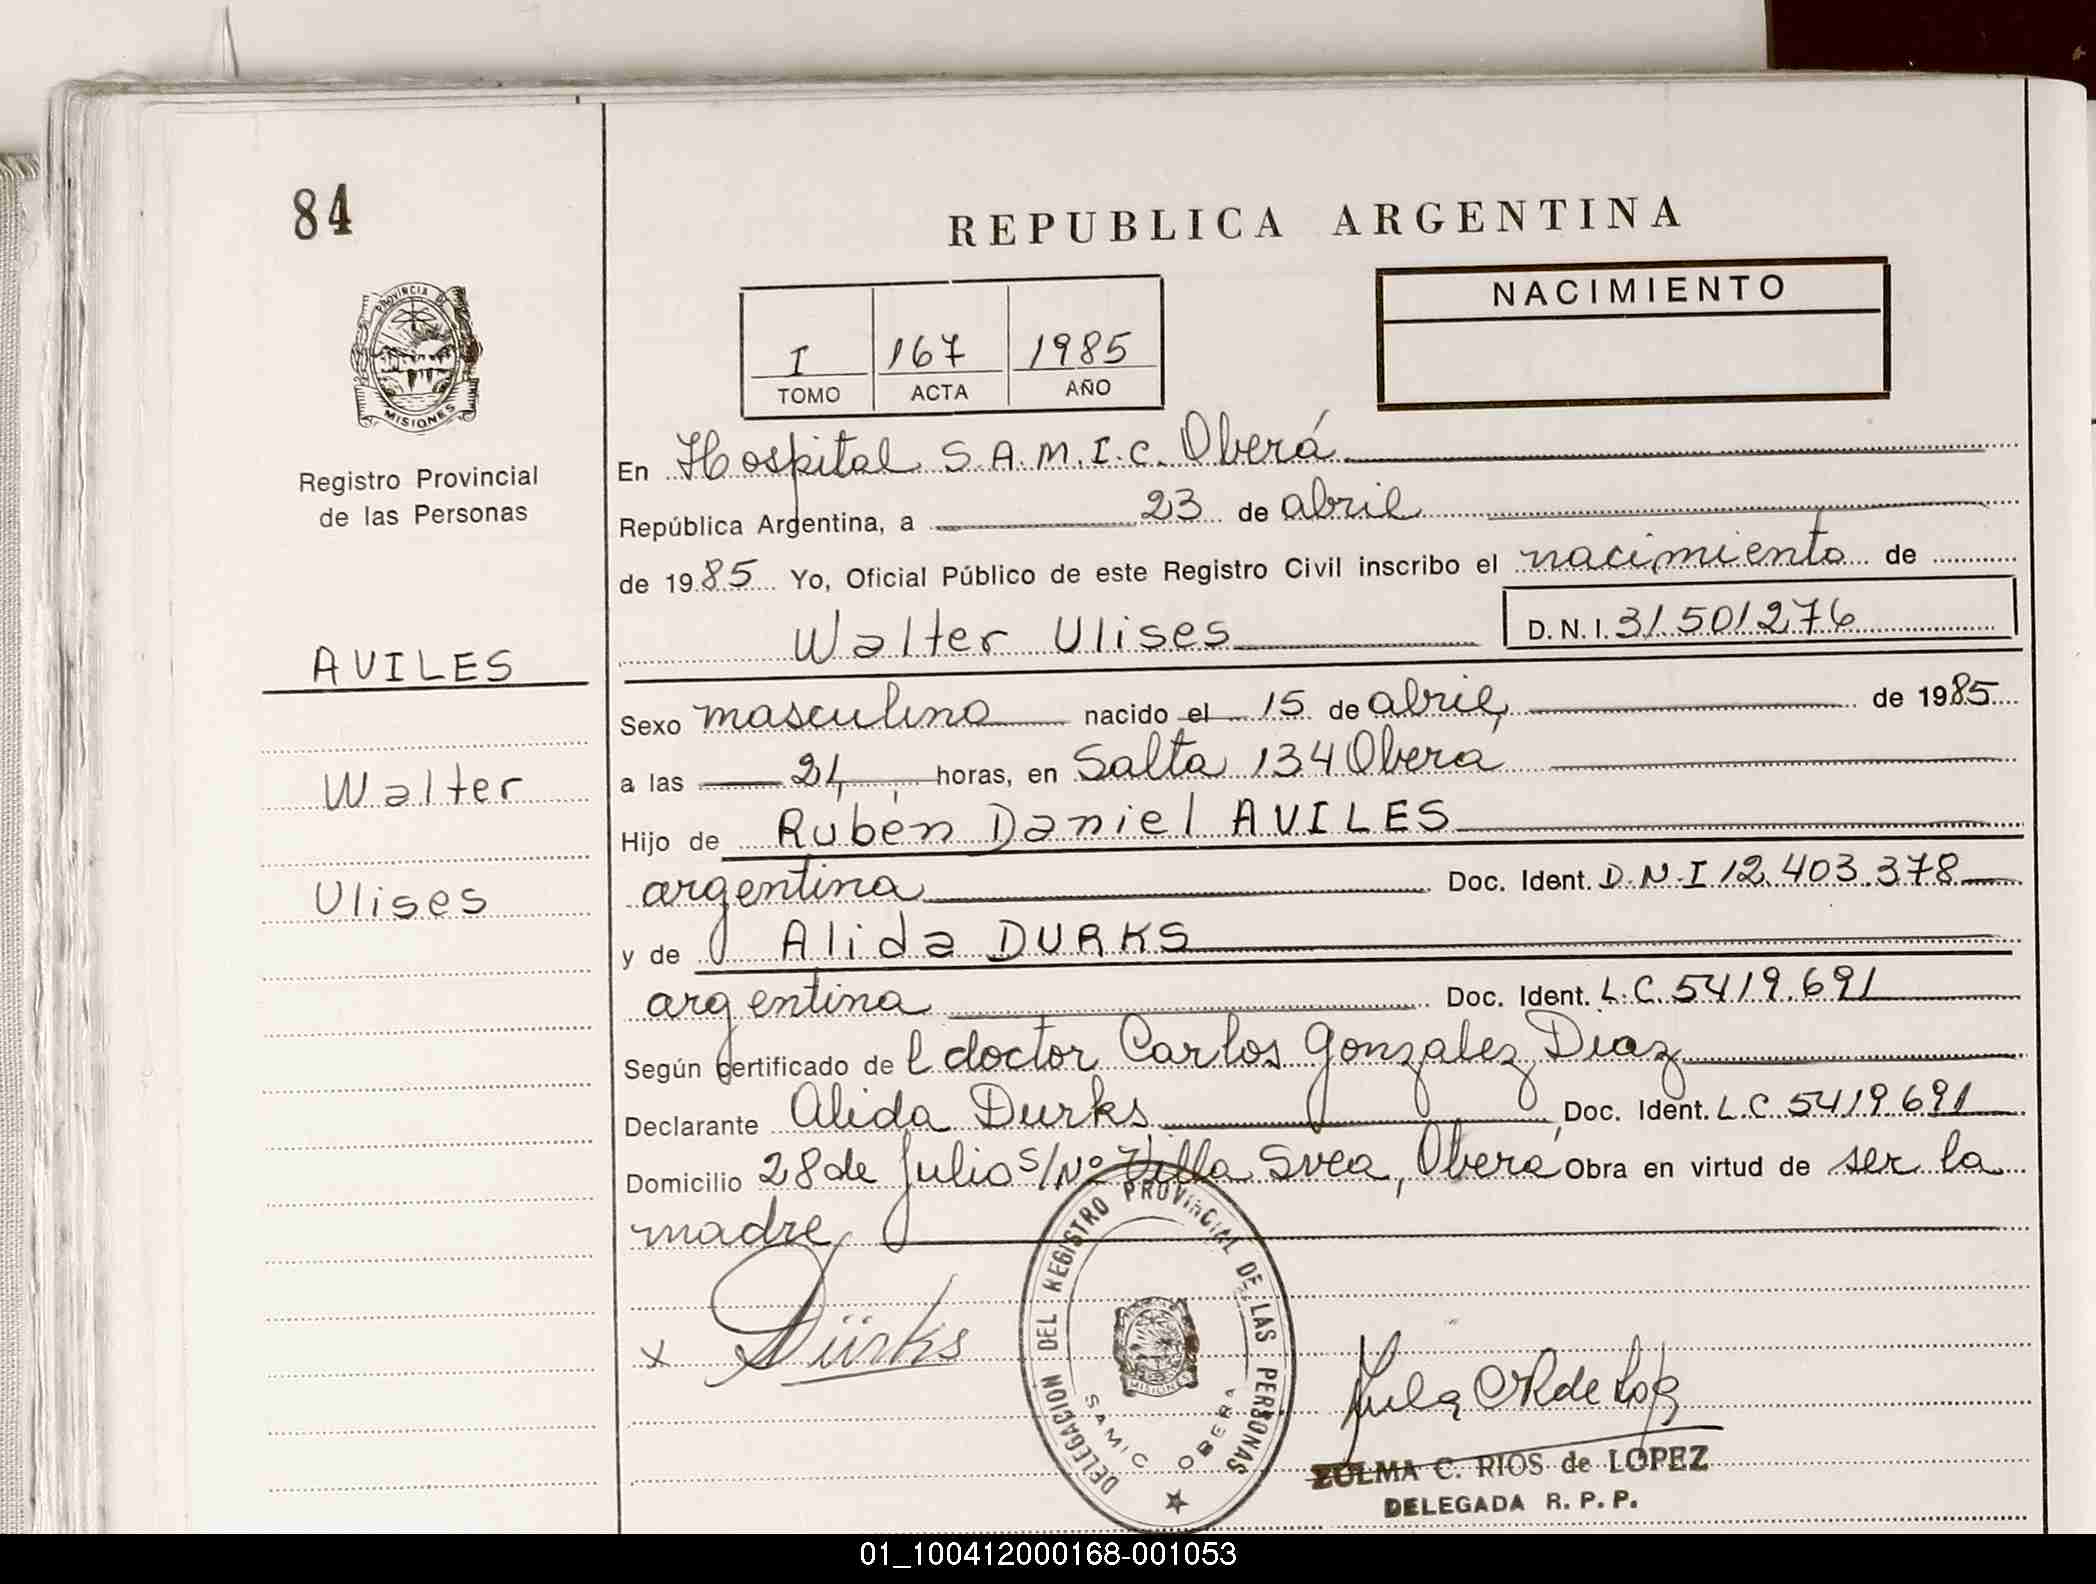 84
REPUBLICA ARGENTINA
PROVINCIA DE
MISIONES
Registro Provincial
de las Personas
I 167 1985
TOMO ACTA AÑO
NACIMIENTO
En Hospital S.A.M.I.C. Oberá
República Argentina, a 23 de abril
de 1985 Yo, Oficial Público de este Registro Civil inscribo el nacimiento de
Walter Ulises D.N.I. 31.501.276
AVILES
Walter
Ulises
Sexo masculino nacido el 15 de abril, de 1985
a las 21, horas, en Salta 134 Obera
Hijo de Rubén Daniel AVILES
argentina Doc. Ident. D.N.I 12.403.378
y de Alida DURKS
argentina Doc. Ident. L.C. 5419.691
Según certificado de l doctor Carlos Gonzalez Diaz
Declarante Alida Durks Doc. Ident. L.C. 5419.691
Domicilio 28 de Julio S/Nº Villa Svea, Oberá Obra en virtud de ser la
madre
x Dürks
DELEGACION DEL REGISTRO PROVINCIAL DE LAS PERSONAS
MISIONES
SAMIC OBERA
ZULMA C. RIOS de LOPEZ
DELEGADA R.P.P.
01_100412000168-001053